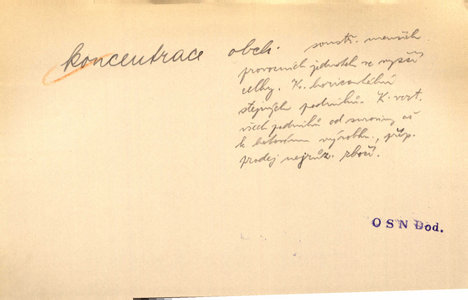 koncentrace obch. soustř. menších
provozních jednotek ve vyšší
celky. K. horizontální
stejných podniků. K. vert.
více podniků od suroviny až
k hotovému výrobku, příp.
prodej nejrůz. zboží.
OSN Dod.